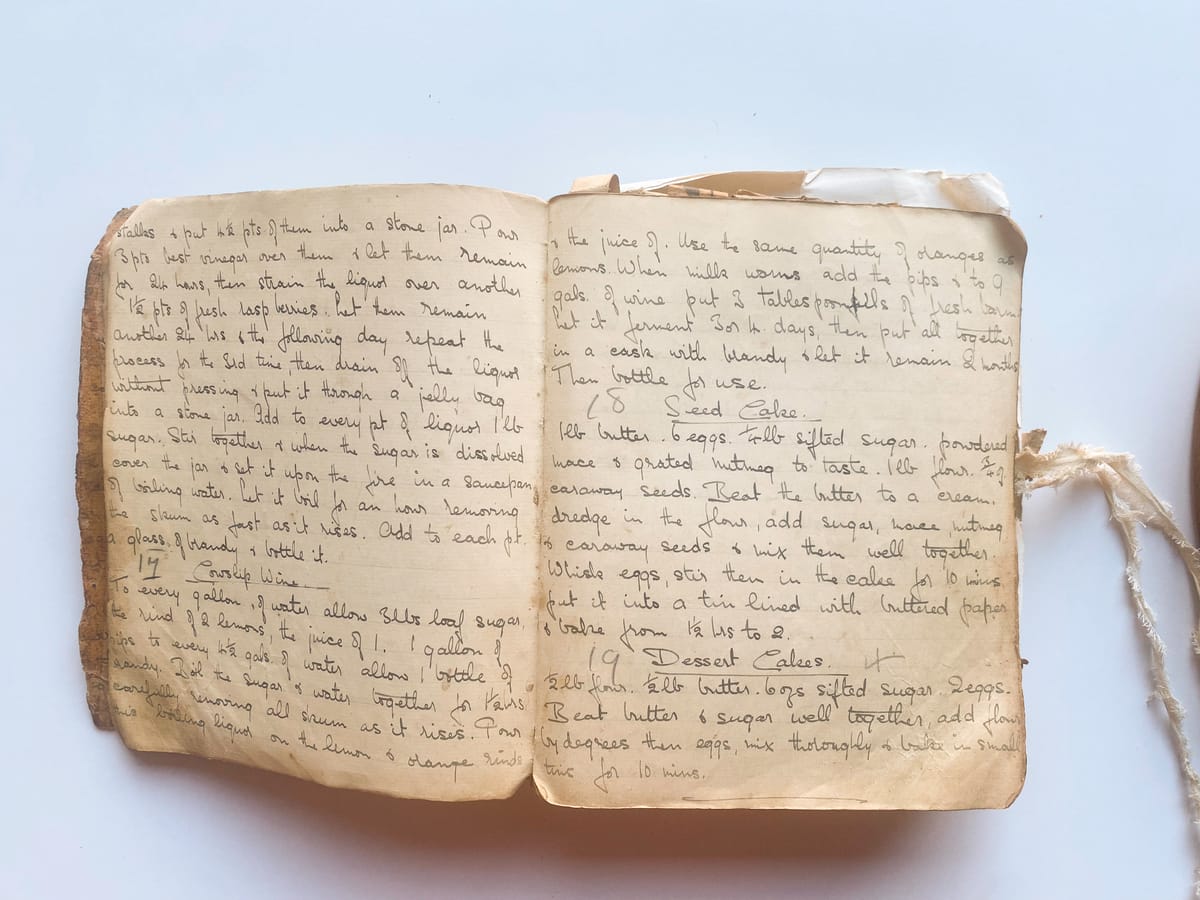 stalks & put 4½ pts of them into a stone jar. Pour
3 pts best vinegar over them & let them remain
for 24 hours, then strain the liquor over another
1½ pts of fresh raspberries. Let them remain
another 24 hrs & the following day repeat the
process for the 3rd time, then drain off the liquor
without pressing & put it through a jelly bag
into a stone jar. Add to every pt of liquor 1 lb
sugar. Stir together & when the sugar is dissolved
cover the jar & set it upon the fire in a saucepan
of boiling water. Let it boil for an hour removing
the skum as fast as it rises. Add to each pt.
a glass of brandy & bottle it.
17 Cowslip Wine.
To every gallon of water allow 3 lbs loaf sugar,
the rind of 2 lemons, the juice of 1. 1 gallon of
pips to every 4½ gals. of water allow 1 bottle of
brandy. Boil the sugar & water together for 1½ hrs
carefully removing all skum as it rises. Pour
this boiling liquor on the lemon & orange rinds
& the juice of. Use the same quantity of oranges as
lemons. When milk warm add the pips & to 9
gals. of wine put 3 tablespoonfulls of fresh barm
Let it ferment 3 or 4 days, then put all together
in a cask with brandy & let it remain 2 months
Then bottle for use.
18 Seed Cake.
1 lb butter. 6 eggs. ¾ lb sifted sugar. powdered
mace & grated nutmeg to taste. 1 lb flour. ¾ oz
caraway seeds. Beat the butter to a cream.
dredge in the flour, add sugar, mace, nutmeg
& caraway seeds & mix them well together.
Whisk eggs, stir then in the cake for 10 mins
put it into a tin lined with buttered paper
& bake from 1½ hrs to 2.
19 Dessert Cakes.
½ lb flour. ½ lb butter. 6 ozs sifted sugar. 2 eggs.
Beat butter & sugar well together, add flour
by degrees then eggs, mix thoroughly & bake in small
tins for 10 mins.